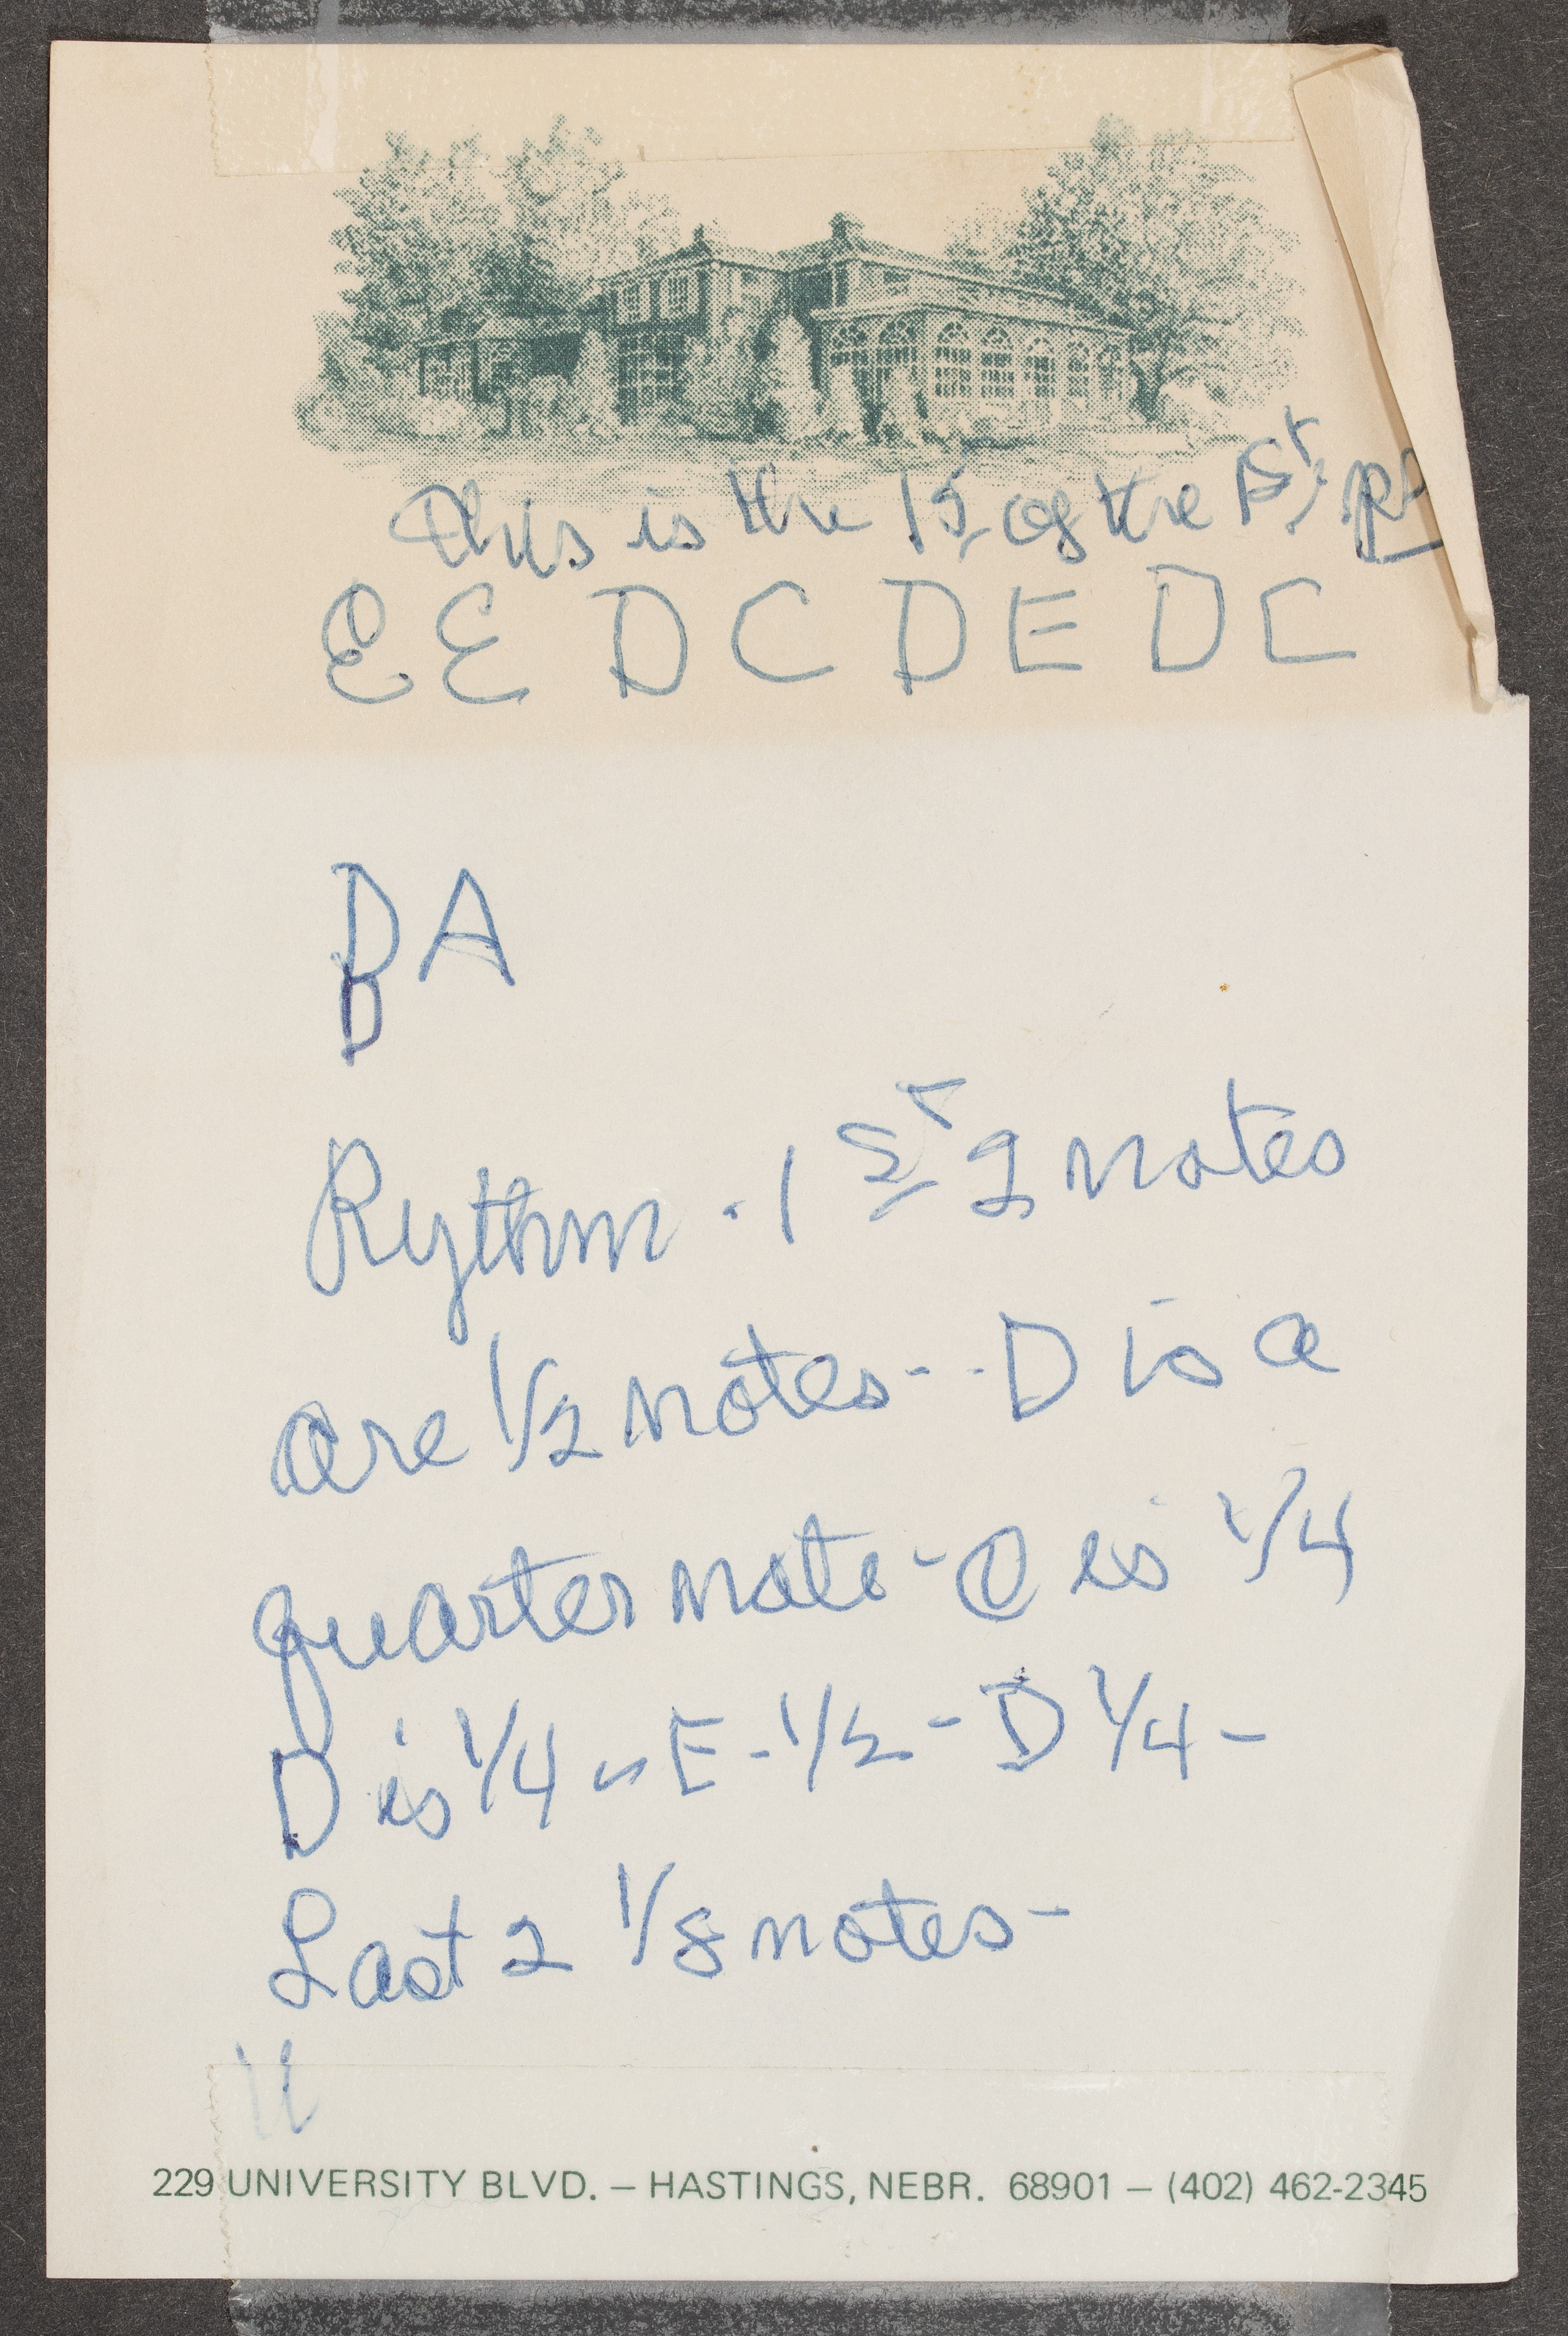 This is the 15 of the 1st pt
E E D C D E D C
D A
D
Rythm - 1st 2 notes
are 1/2 notes - - D is a
quarter note - C is 1/4
D is 1/4 - E - 1/2 - D 1/4 -
Last 2 1/8 notes -
229 UNIVERSITY BLVD. – HASTINGS, NEBR. 68901 – (402) 462-2345